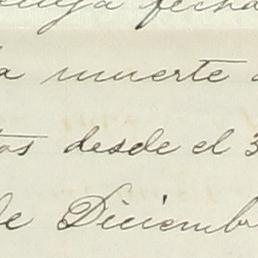 cuya fecha
a muerte
tos desde el 3
de Diciembr